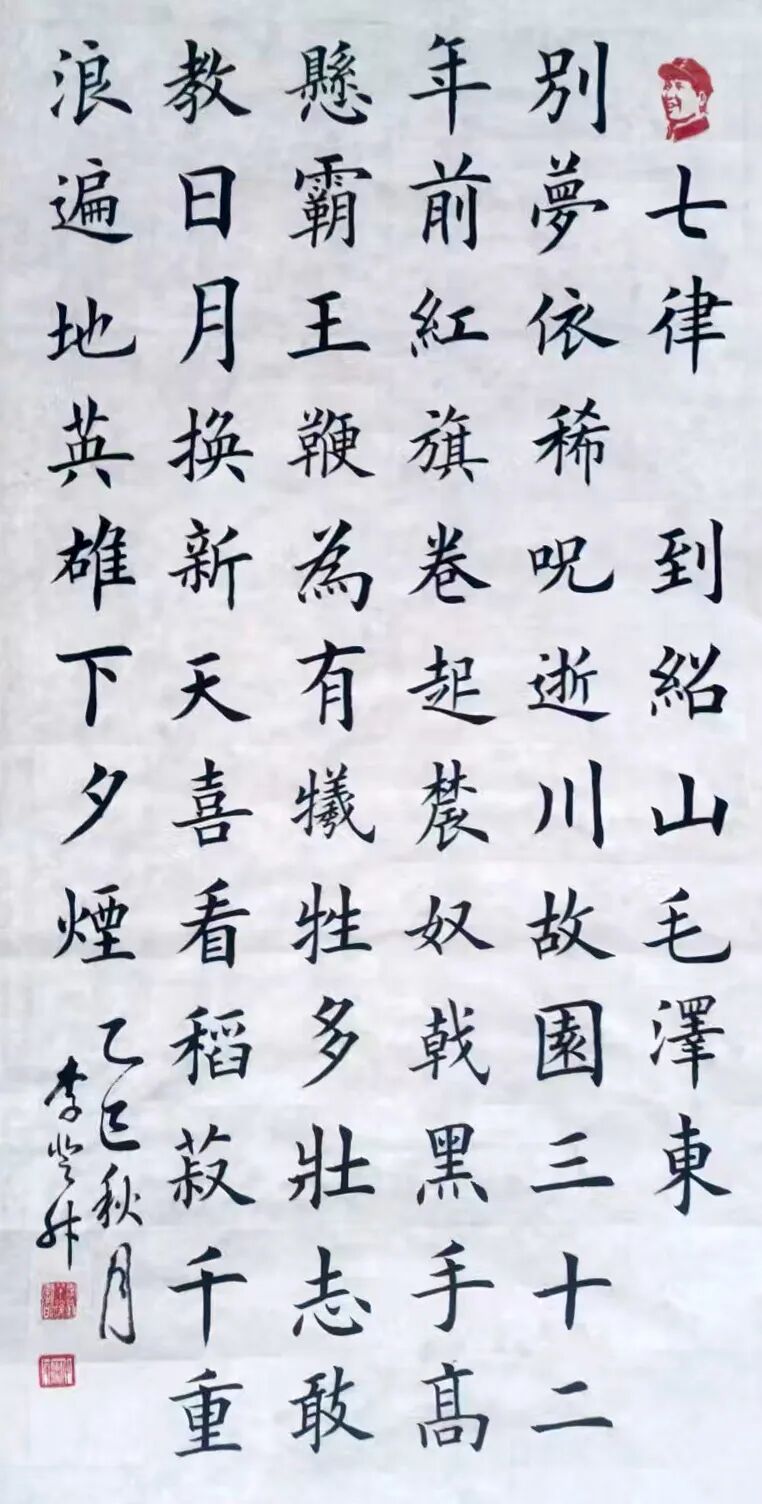 七律 到紹山毛澤東
別夢依稀呪逝川故園三十二
年前紅旗卷起辳奴戟黑手高
懸霸王鞭為有犧牲多壯志敢
教日月換新天喜看稻菽千重
浪遍地英雄下夕煙
乙巳秋月
李